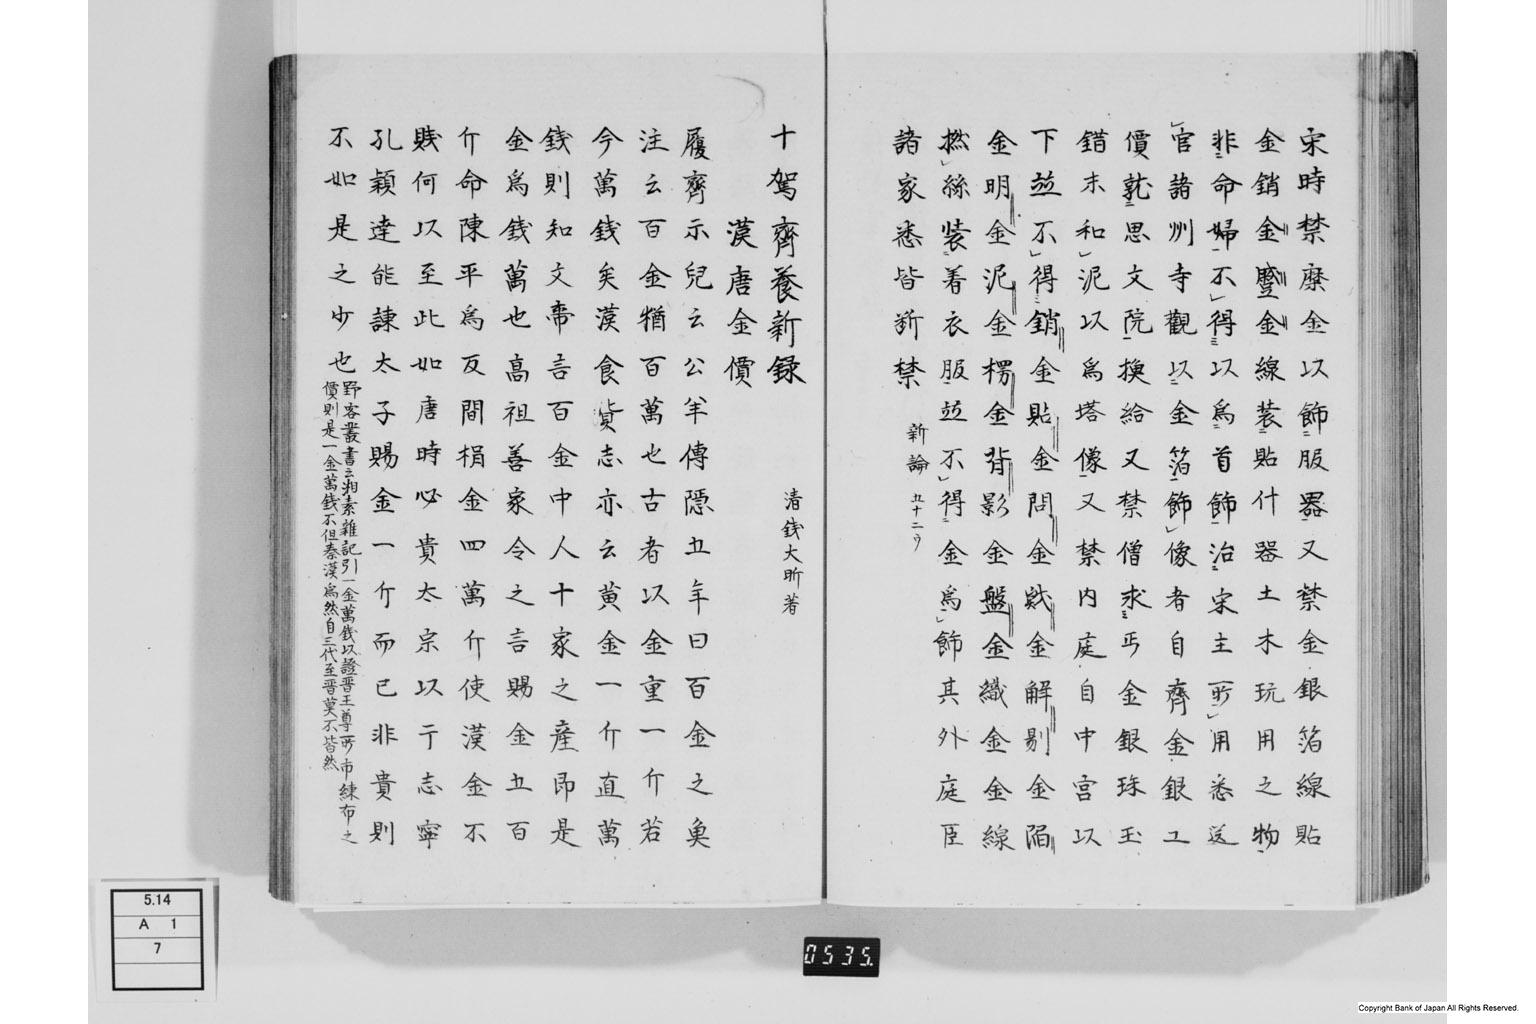 宋時禁糜金以飾服器又禁金銀箔線貼
金銷金蹙金線装貼什器土木玩用之物
非命婦不得以為首飾治宋主所用悉送
官諸州寺觀以金箔飾像者自齊金銀工
價就思文院換給又禁僧求丐金銀珠玉
錯末和泥以為塔像又禁内庭自中宮以
下並不得銷金貼金間金戭金解剔金陥
金明金泥金楞金背影金盤金織金金線
撚絲装着衣服並不得金為飾其外庭臣
諸家悉皆断禁 新論 五十二ウ
十駕齊養新録 清錢大昕著
漢唐金價
履齊示兒云公羊傳隠五年曰百金之奐
注云百金猶百萬也古者以金重一斤若
今萬錢矣漢食貨志亦云黄金一斤直萬
錢則知文帝言百金中人十家之産即是
金為錢萬也高祖善家令之言賜金五百
斤命陳平為反間捐金四萬斤使漢金不
賎何以至此如唐時必貴太宗以于志寧
孔穎達能諌太子賜金一斤而已非貴則
不如是之少也
野客叢書云湘素雜記引一金萬錢以證晋王導所市練布之
價則是一金萬錢不但秦漢為然自三代至晋莫不皆然
5.14
A 1
7
0535.
Copyright Bank of Japan All Rights Reserved.